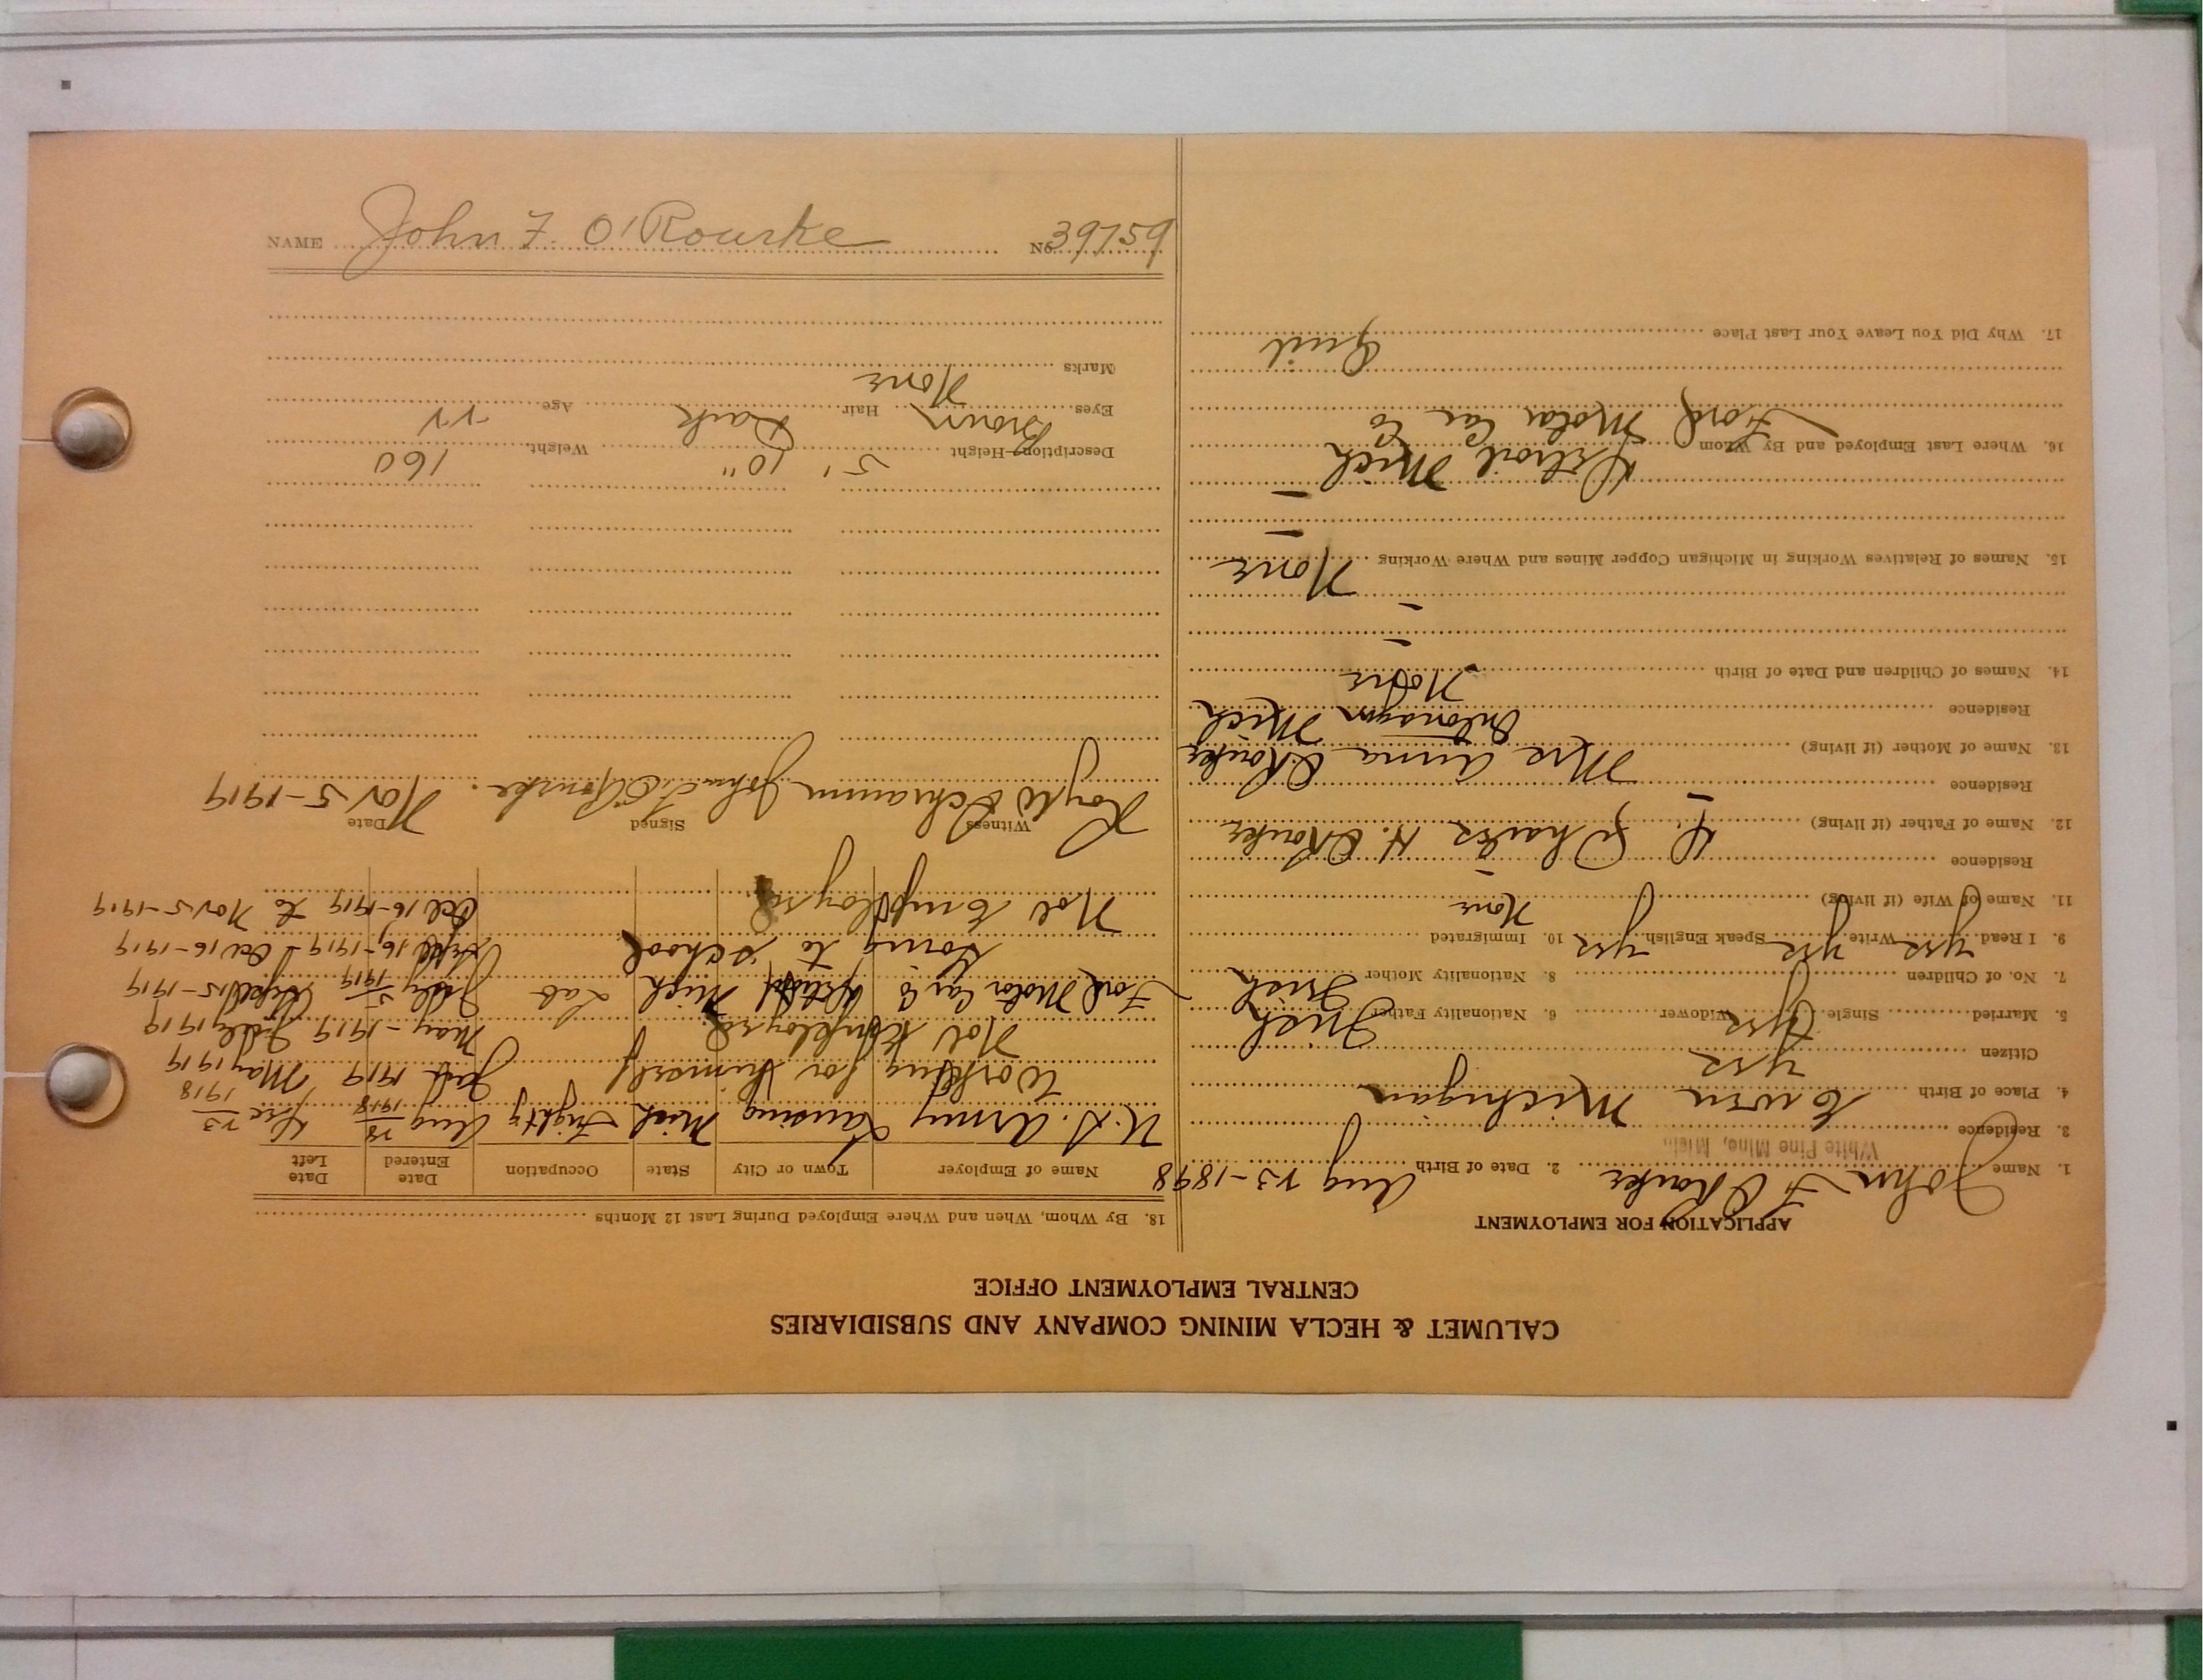 NAME John F. O'Rourke No. 39759
CALUMET & HECLA MINING COMPANY AND SUBSIDIARIES
CENTRAL EMPLOYMENT OFFICE
APPLICATION FOR EMPLOYMENT
1. Name John F O'Rourke 2. Date of Birth Aug 23-1898
3. Residence White Pine Mine, Mich.
4. Place of Birth Ewen Michigan
Citizen yes
5. Married Single yes Widower 6. Nationality Father Irish
7. No. of Children 8. Nationality Mother Irish
9. I Read yes Write yes Speak English yes 10. Immigrated
11. Name of Wife (if living) None
Residence –
12. Name of Father (if living) D. Charles H. O'Rourke
Residence –
13. Name of Mother (if living) Mrs Anna O'Rourke
Residence Ontonagon Mich
14. Names of Children and Date of Birth None
–
–
15. Names of Relatives Working in Michigan Copper Mines and Where Working None
–
–
16. Where Last Employed and By Whom Detroit Mich
Ford Motor Car Co
17. Why Did You Leave Your Last Place Quit
18. By Whom, When and Where Employed During Last 12 Months
Name of Employer Town or City State Occupation Date Entered Date Left
U.S. Army Lansing Mich Aug 28 1918 Dec 23 1918
Working for himself 1919 May 1919
Not Employed May-1919 July 1919
Ford Motor Car Co Detroit Mich Lab July 5 1919 Sept 15-1919
Going to school Sept 16-1919 Oct 16-1919
Not Employed Oct 16-1919 to Nov 5-1919
Witness Signed Date
Schramm John F. O'Rourke. Nov 5-1919
Description—Height 5' 10" Weight 160
Eyes Brown Hair Dark Age 22
Marks None